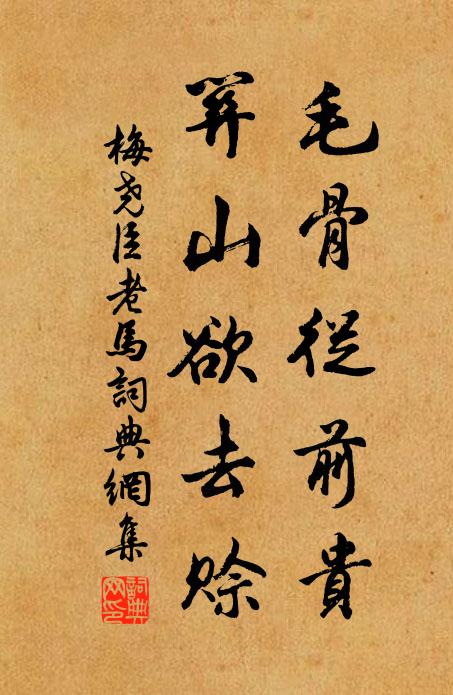 毛骨從前貴
關山欲去賒
梅堯臣老馬詞典網集
詞典网印